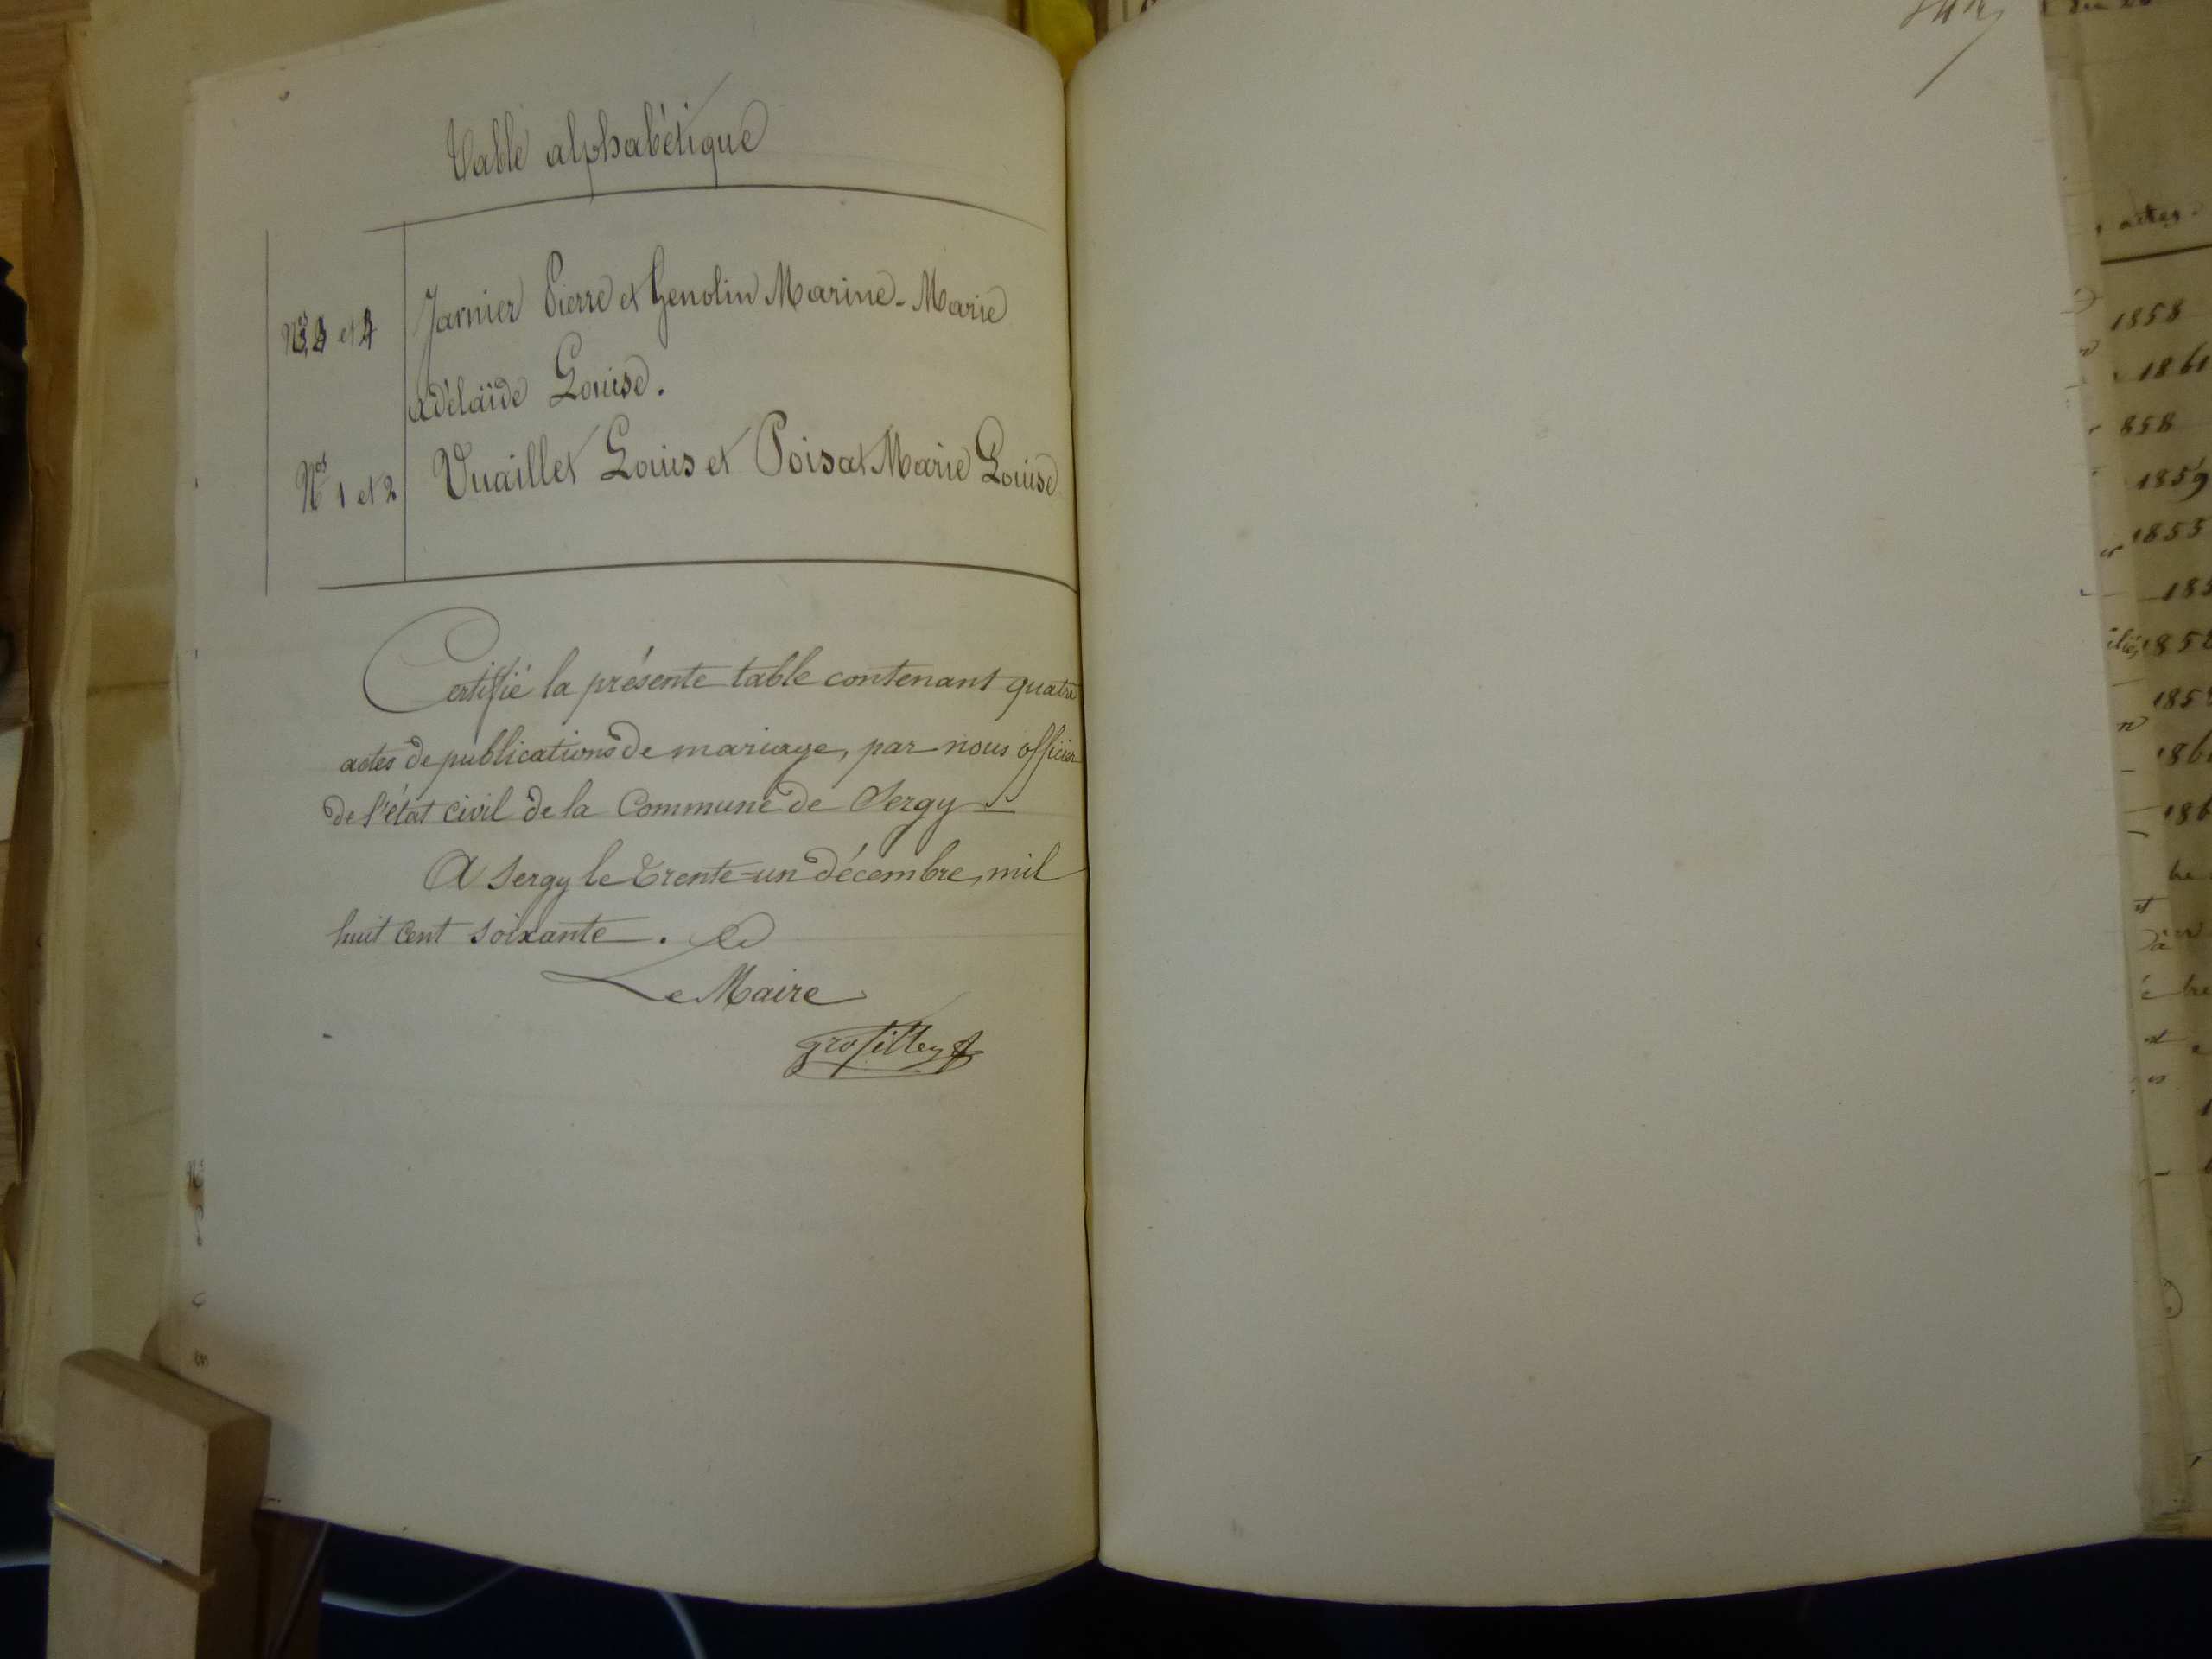 Table alphabétique
Nos 3 et 4
Jarnier Pierre et Genolin Marine-Marie
adélaïde Louise.
Nos 1 et 2
Vuaillet Louis et Poisat Marie Louise
Certifié la présente table contenant quatre
actes de publications de mariage, par nous officier
de l'état civil de la Commune de Sergy
A Sergy le trente-un décembre, mil
huit cent soixante.
Le Maire
grosfilley
actes.
1858
1861
858
1859
1855